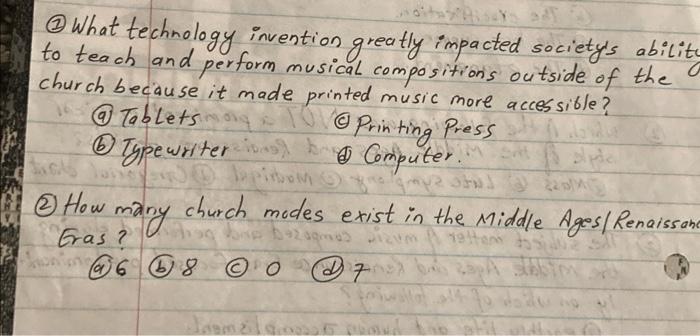 ① What technology invention greatly impacted society's ability
to teach and perform musical compositions outside of the
church because it made printed music more accessible?
ⓐ Tablets ⓒ Printing Press
ⓑ Typewriter ⓓ Computer.
② How many church modes exist in the Middle Ages/Renaissanc
Eras?
ⓐ 6 ⓑ 8 ⓒ 0 ⓓ 7